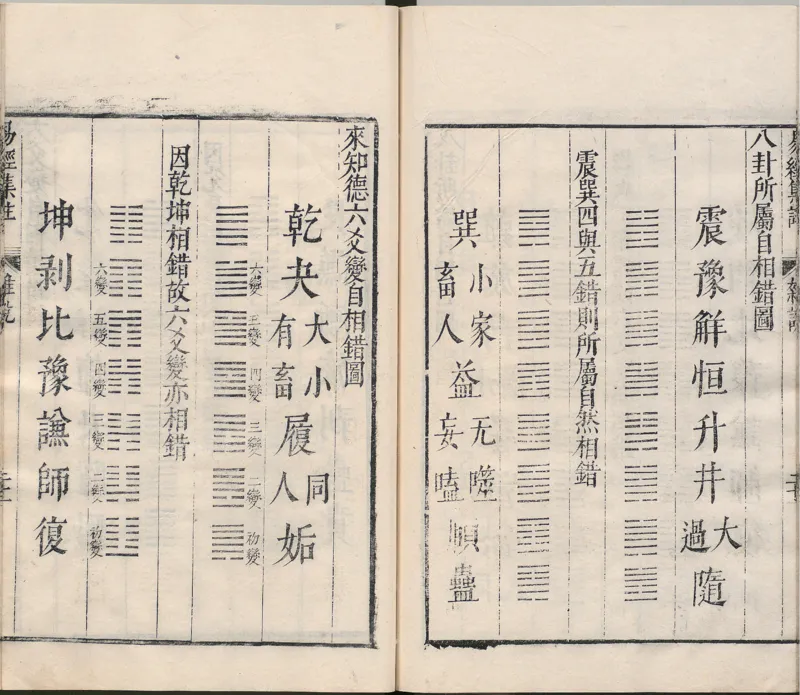 八卦所屬自相錯圖
震豫解恒升井大過隨
震巽四與五錯則所屬自然相錯
巽小畜家人益无妄噬嗑頤蠱
來知德六爻變自相錯圖
乾夬大有小畜履同人姤
六變
五變
四變
三變
二變
初變
因乾坤相錯故六爻變亦相錯
六變
五變
四變
三變
二變
初變
坤剥比豫謙師復
易經集註